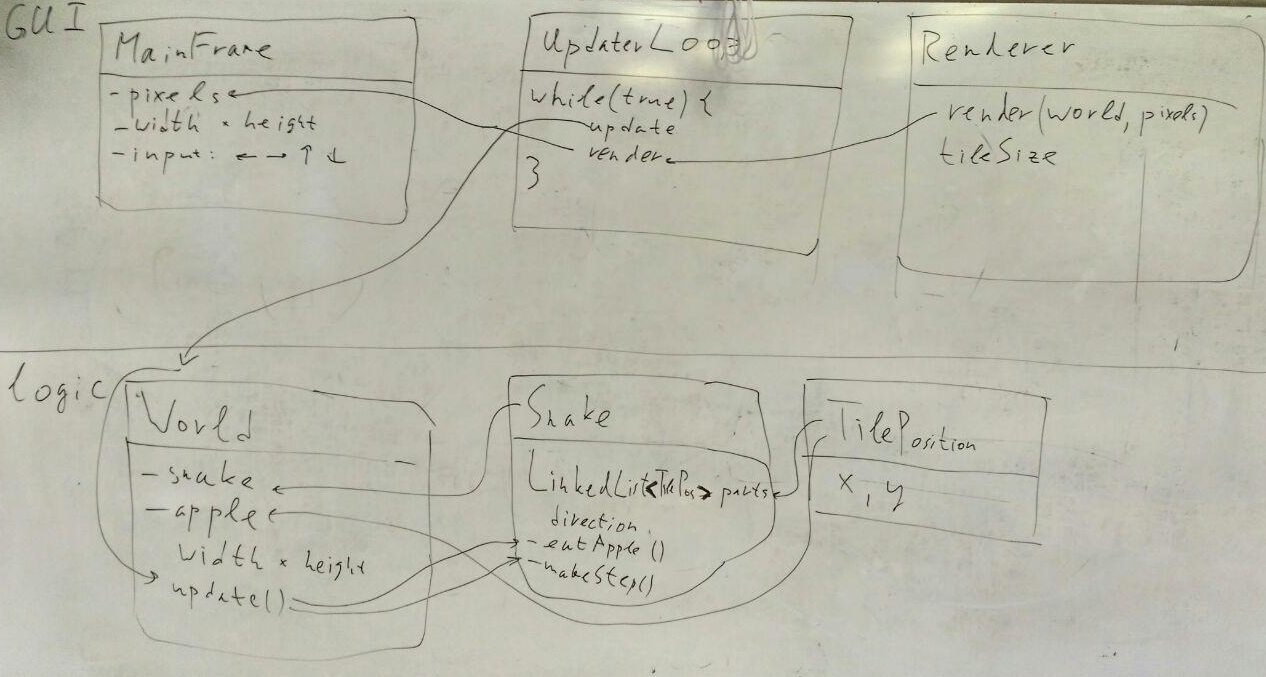 GUI
MainFrame
- pixels
- width × height
- input: ← → ↑ ↓
UpdaterLoop
while(true) {
update
render
}
Renderer
render(world, pixels)
tileSize
logic
World
- snake
- apple
width × height
update()
Snake
LinkedList<TilePos> parts
direction
- eatApple()
- makeStep()
TilePosition
x, y